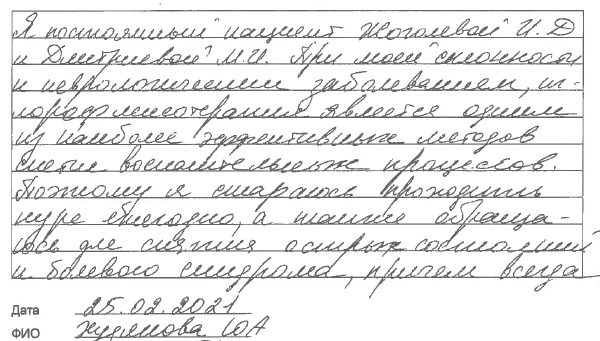 Я постоянный пациент Жоголевой И.Д
и Дмитриевой М.И. При моей склонности
к неврологическим заболеваниям, иг-
лорефлексотерапия является одним
из наиболее эффективных методов
снятия воспалительных процессов.
Поэтому я стараюсь проходить
курс ежегодно, а также обраща-
юсь для снятия острых состояний
и болевого синдрома, причем всегда
Дата 25.02.2021
ФИО Худякова ЮА